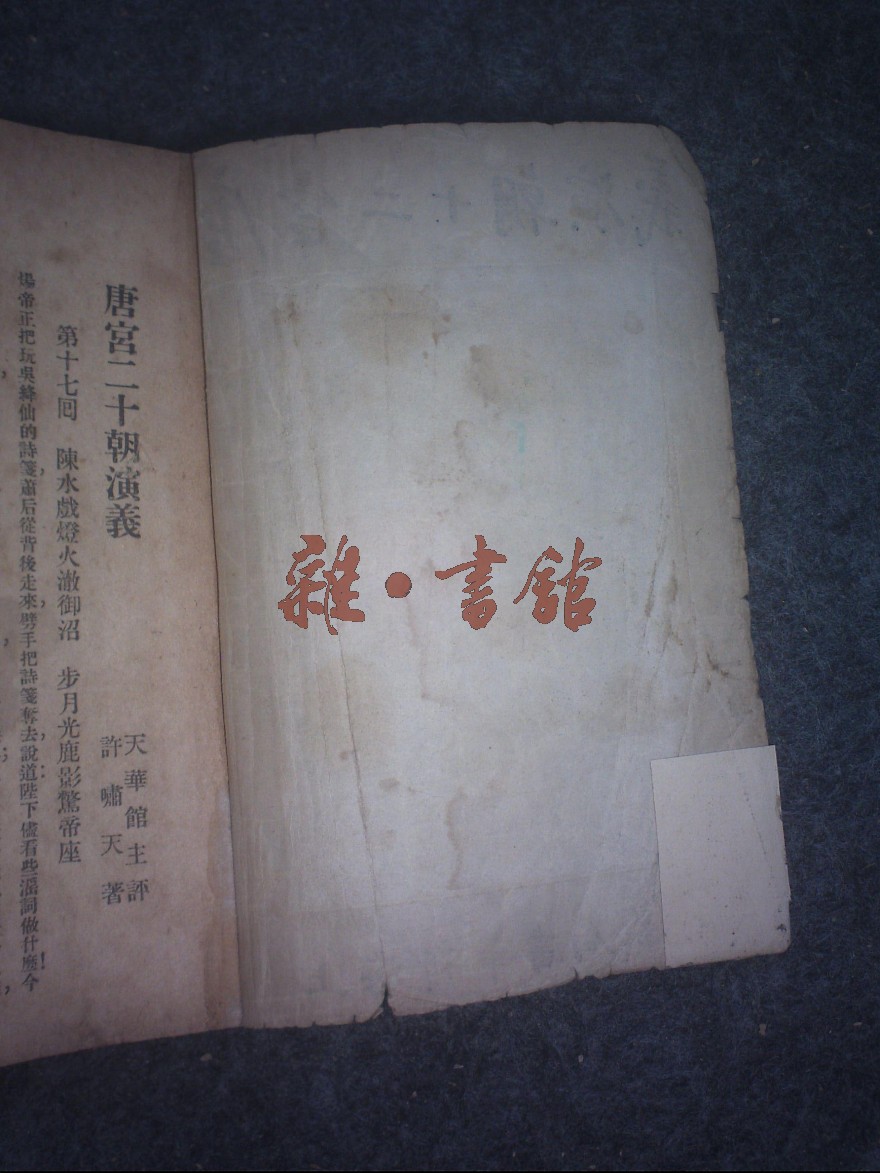 雜·書館
唐宮二十朝演義
天華館主評
許嘯天著
第十七囘 陳水戲燈火澈御沼 步月光鹿影驚帝座
煬帝正把玩吳絳仙的詩箋蕭后從背後走來劈手把詩箋奪去說道陛下儘看些濫詞做什麽今